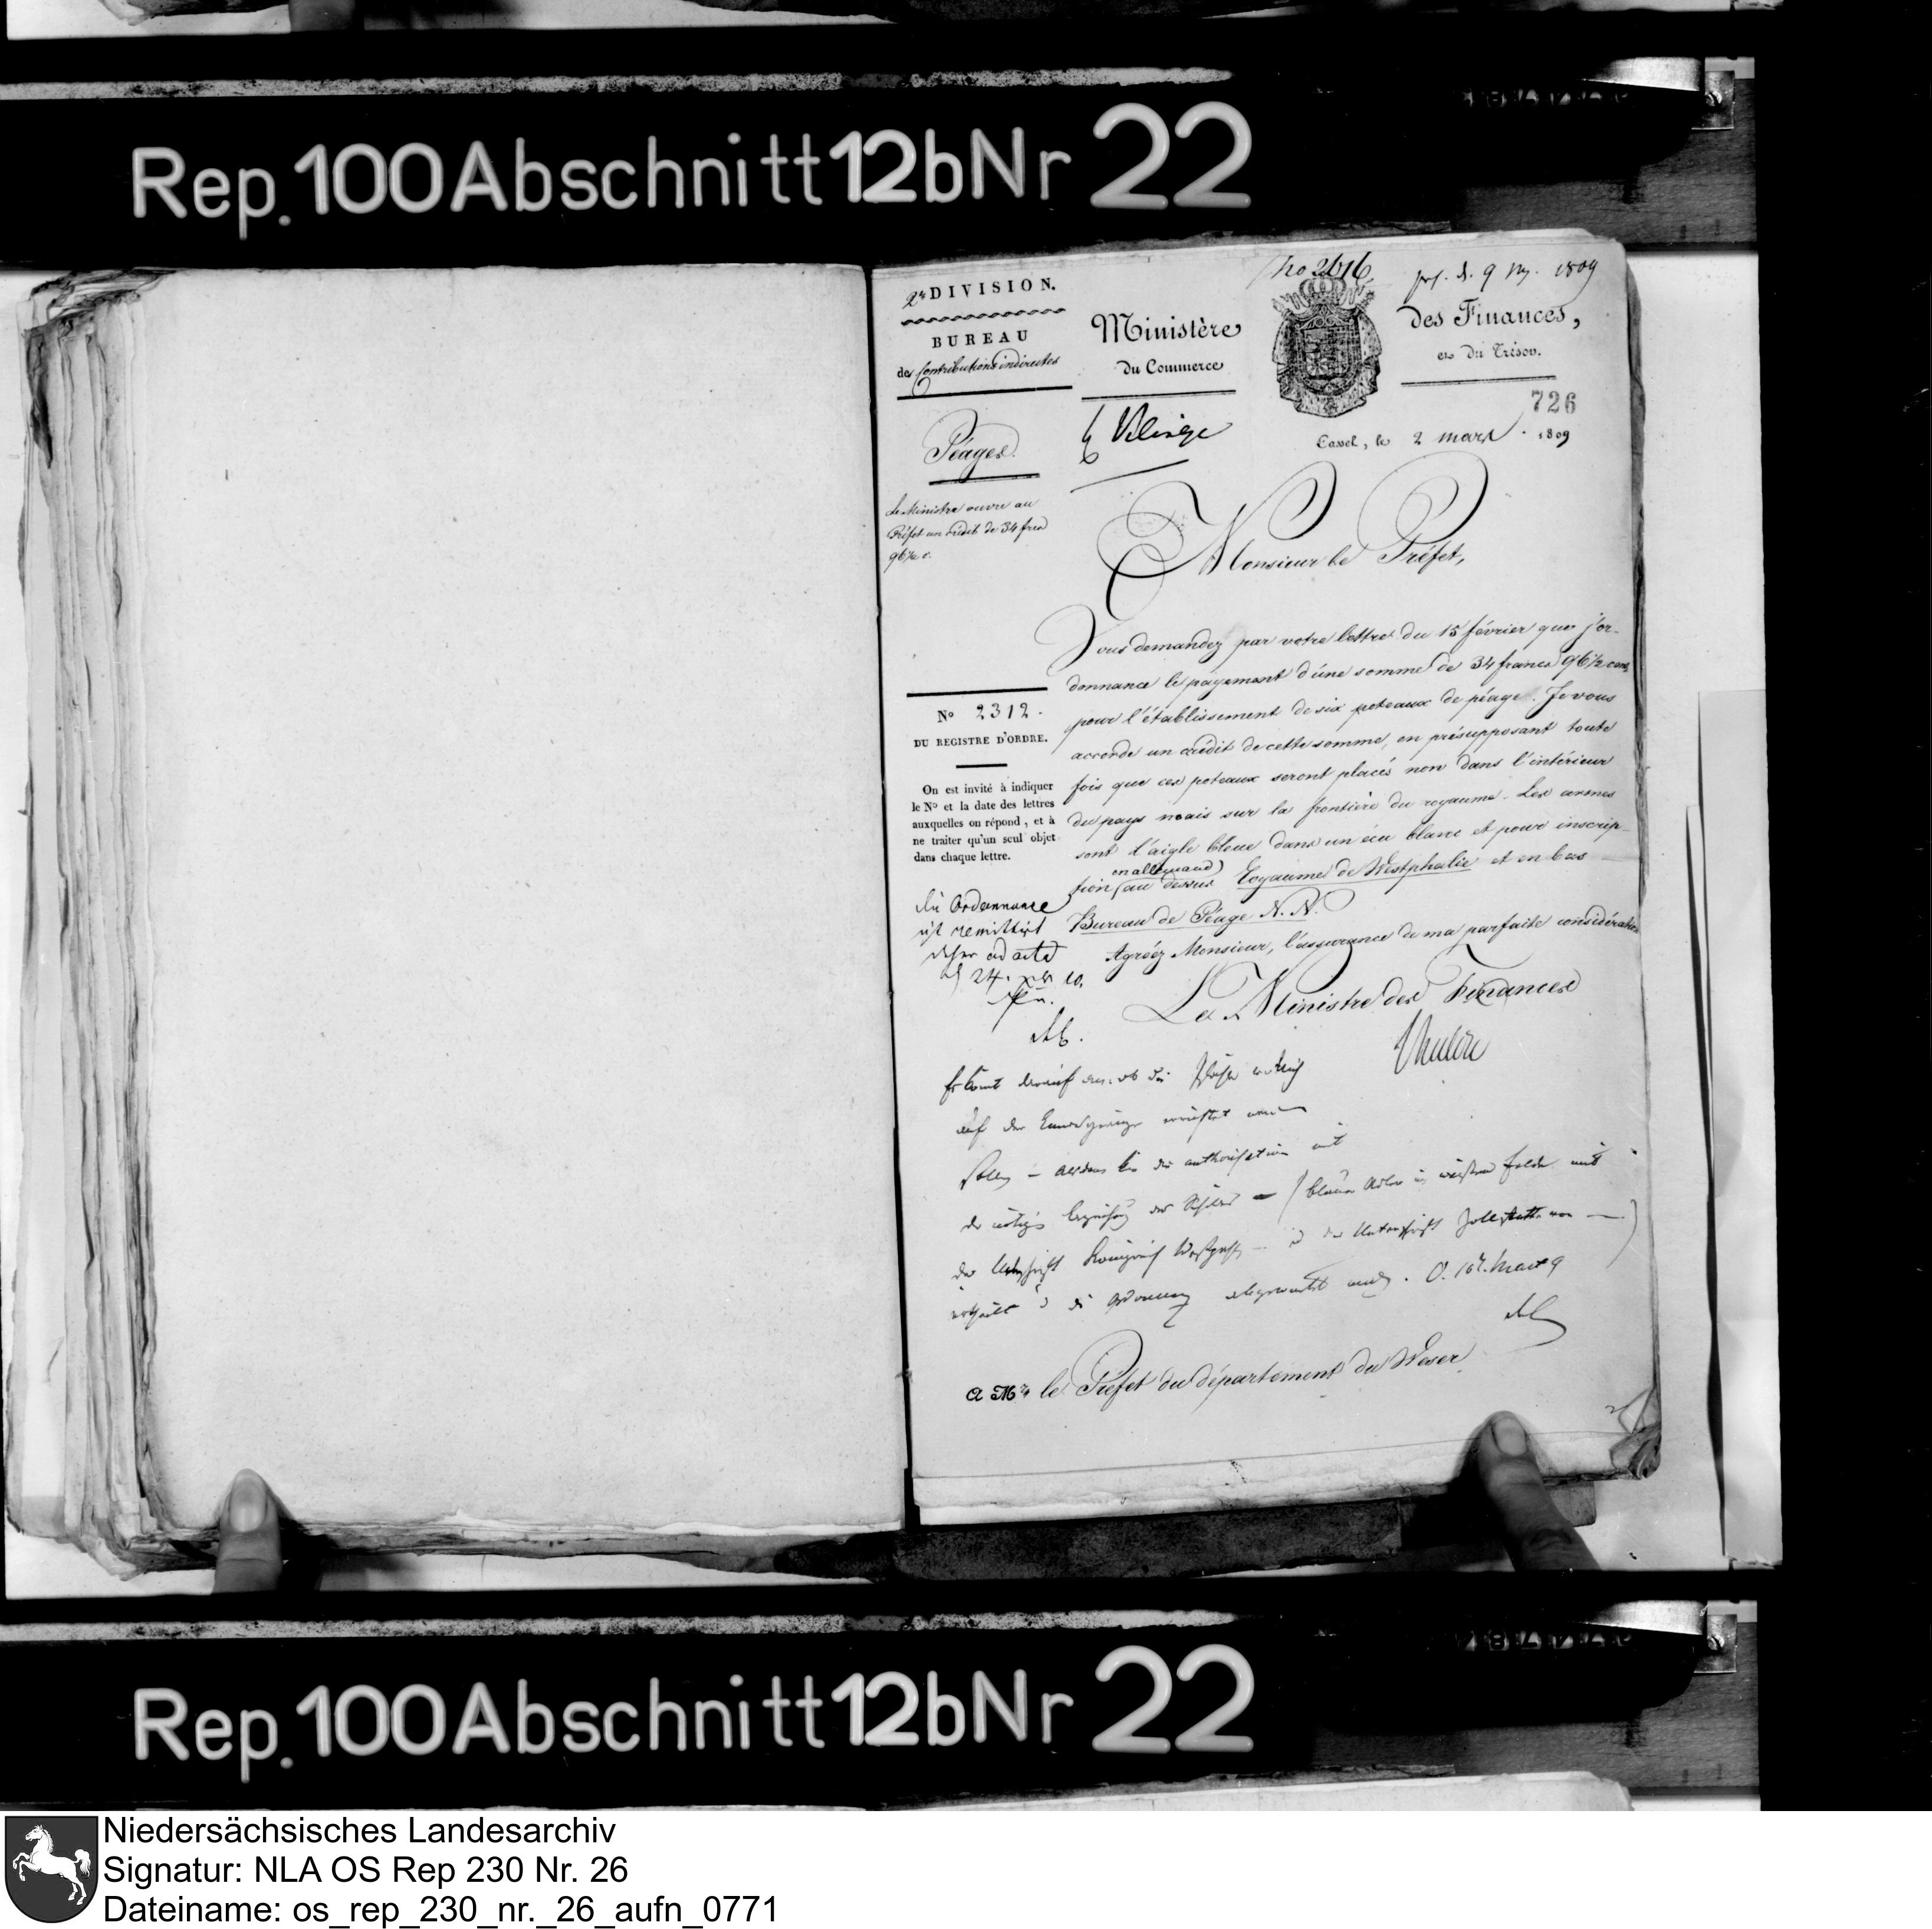 Rep. 100 Abschnitt 12b Nr 22
2e DIVISION.
BUREAU
des Contributions indirectes
Péages.
Le Ministre ouvre au
Préfet un crédit de 34 frcs
96½ c.
No 2312.
DU REGISTRE D'ORDRE.
On est invité à indiquer
le No et la date des lettres
auxquelles on répond, et à
ne traiter qu'un seul objet
dans chaque lettre.
die Ordonnance
ist remittirt
ad acta
24.
no 2616
9 1809
Ministère des Finances,
du Commerce et du Trésor.
726
Cassel, le 2 mars 1809
Monsieur le Préfet,
Vous demandez par votre lettre du 15 février que j'or-
donnance le payement d'une somme de 34 francs 96½ cent.
pour l'établissement de six poteaux de péage. Je vous
accorde un crédit de cette somme, en présupposant toute
fois que ces poteaux seront placés non dans l'intérieur
du pays mais sur la frontière du royaume. Les armes
sont l'aigle bleue dans un écu blanc et pour inscrip-
en allemand
tion (au dessus Royaume de Westphalie et en bas
Bureau de Péage N. N.
Agréez Monsieur, l'assurance de ma parfaite considération
Le Ministre des Finances
auf der Landesgrenze errichtet werden
sollen – die authorisation mit
der (blauer Adler im weißen Felde mit
der Königreich Westph. der Unterschrift Zollstätte von —)
ertheilt
A Mr le Préfet du département du Weser
Rep. 100 Abschnitt 12b Nr 22
Niedersächsisches Landesarchiv
Signatur: NLA OS Rep 230 Nr. 26
Dateiname: os_rep_230_nr._26_aufn_0771